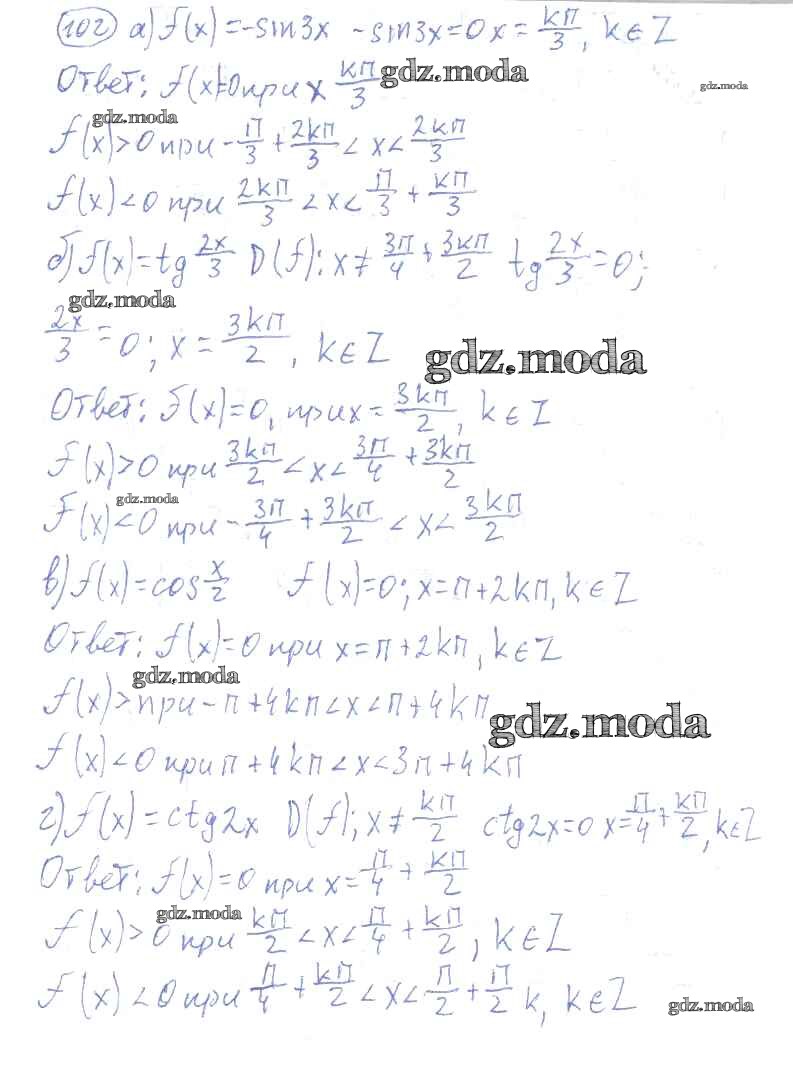 102 а) f(x)=-sin3x -sin3x=0 x=kπ/3, k∈Z
Ответ: f(x)=0 при x kπ/3 gdz.moda gdz.moda
gdz.moda
f(x)>0 при -π/3+2kπ/3<x<2kπ/3
f(x)<0 при 2kπ/3<x<π/3+kπ/3
б) f(x)=tg 2x/3 D(f): x≠3π/4+3kπ/2 tg 2x/3=0;
gdz.moda
2x/3=0; x=3kπ/2, k∈Z
gdz.moda
Ответ: f(x)=0, при x=3kπ/2, k∈Z
f(x)>0 при 3kπ/2<x<3π/4+3kπ/2
gdz.moda
f(x)<0 при -3π/4+3kπ/2<x<3kπ/2
в) f(x)=cos x/2 f(x)=0; x=π+2kπ, k∈Z
Ответ: f(x)=0 при x=π+2kπ, k∈Z
gdz.moda
f(x)> при -π+4kπ<x<π+4kπ
gdz.moda
f(x)<0 при π+4kπ<x<3π+4kπ
г) f(x)=ctg2x D(f); x≠kπ/2 ctg2x=0 x=π/4+kπ/2, k∈Z
Ответ: f(x)=0 при x=π/4+kπ/2
gdz.moda
f(x)>0 при kπ/2<x<π/4+kπ/2, k∈Z
f(x)<0 при π/4+kπ/2<x<π/2+π/2 k, k∈Z gdz.moda